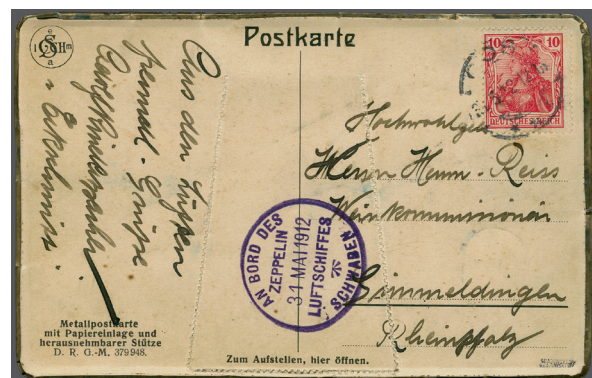 Postkarte
10 10
DEUTSCHES REICH
Aus den Lüften
Hochwohlgeb
Herrn Herm. Reiss
Weinkommissionär
Gimmeldingen
Rheinpfalz
AN BORD DES
ZEPPELIN
31 MAI 1912
LUFTSCHIFFES
SCHWABEN
Metallpostkarte
mit Papiereinlage und
herausnehmbarer Stütze
D. R. G.-M. 379948.
Zum Aufstellen, hier öffnen.